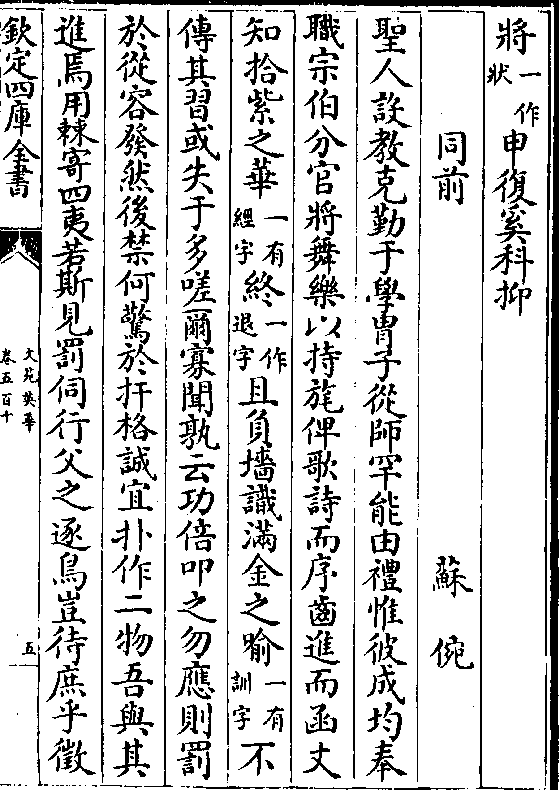 將一作狀申復奚科抑
同前 蘇俛
聖人設教克勤于學胄子從師罕能由禮惟彼成均奉
職宗伯分官將舞樂以持旄俾歌詩而序齒進而函丈
知拾紫之華一有經字終一作退字且負墻識滿金之喻一有訓字不
傳其習或失于多嗟爾寡聞孰云功倍叩之勿應則罰
於從容發然後禁何驚於扞格誠宜扑作二物吾與其
進焉用棘寄四夷若斯見罰伺行父之逐鳥豈待庶乎徵
欽定四庫全書
文苑英華
卷五百十
五